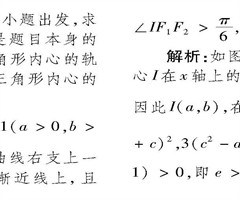 小题出发，求
是题目本身的
角形内心的轨
三角形内心的
1(a > 0, b >
曲线右支上一
渐近线上，且
∠IF₁F₂ > π/6,
解析：如图
心 I 在 x 轴上的
因此 I(a, b)，在
+ c)², 3(c² − a
1) > 0，即 e >